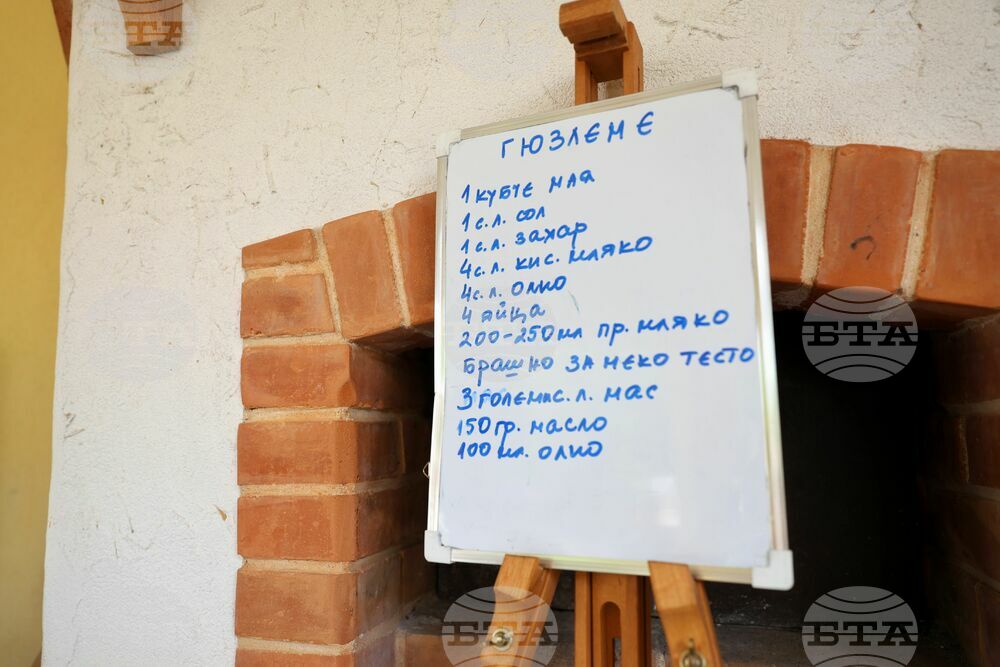 ГЮЗЛЕМЕ
1 КУБЧЕ МАЯ
1 с.л. сол
1 с.л. захар
4 с.л. кис. мляко
4 с.л. олио
4 яйца
200-250 мл пр. мляко
Брашно за меко тесто
3 големи с.л. мас
150 гр. масло
100 мл. олио
БТА
БТА
БТА
БТА